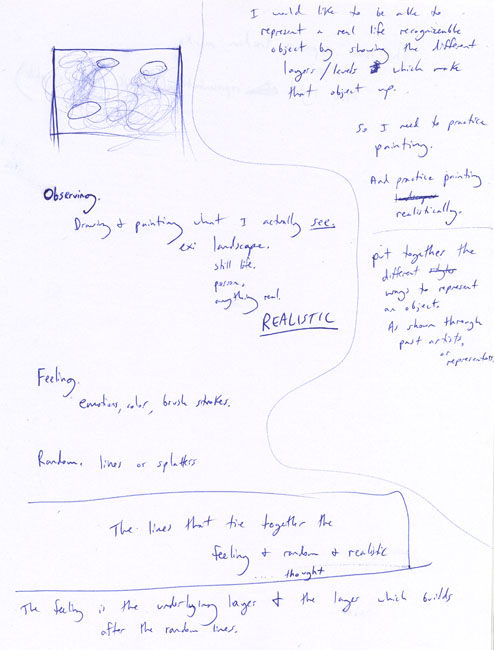 I would like to be able to
represent a real life recognizeable
object by showing the different
layers/levels which make
that object up.
So I need to practice
painting.
And practice painting
realistically.
put together the
different
ways to represent
an object.
As shown through
past artists,
or
representators.
Observing.
Drawing & painting what I actually see.
ex: landscape.
still life.
person.
anything real.
REALISTIC
Feeling.
emotions, color, brush strokes.
Random. lines or splatters
The lines that tie together the
feeling & random & realistic
thought
The feeling is the underlying layer & the layer which builds
after the random lines.